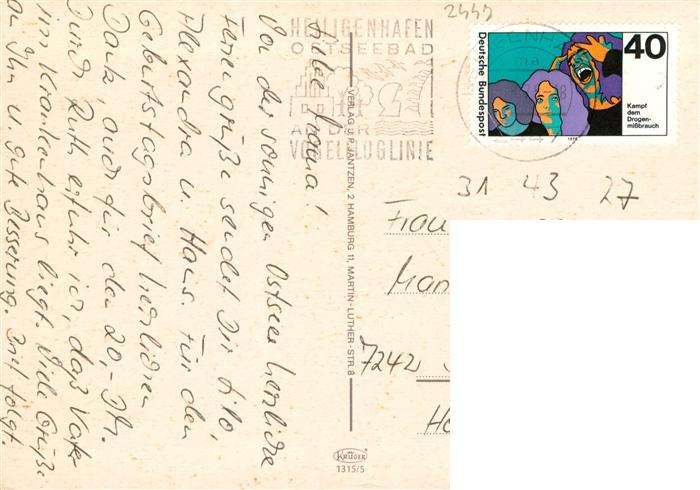 Liebe Mama!
Von der sonnigen Ostsee herzliche
Feriengrüße sendet Dir
Alexandra u. Hans. Für den
Geburtstagsbrief herzlichen
Dank auch für den 20,- DM.
Durch Ruth erfuhr ich, daß Vater
im Krankenhaus liegt. Viele Grüße
an Ihn u. gute Besserung. Brief folgt.
HEILIGENHAFEN
OSTSEEBAD
VOGELFLUGLINIE
VERLAG U.P. JANTZEN, 2 HAMBURG 11, MARTIN-LUTHER-STR. 8
KRÜGER
1315/5
Deutsche Bundespost
40
Kampf
dem
Drogen-
mißbrauch
1975
31 43 27
Frau
7242